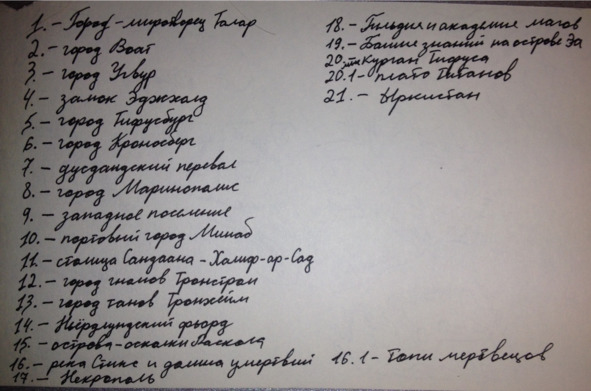 1. – Город-миротворец Талар
2. – город Воат
3. – город Угвур
4. – замок Эджхолд
5. – город Тифусбург
6. – город Кроносберг
7. – дусдандский перевал
8. – город Маринополис
9. – западное поселение
10. – портовый город Минаб
11. – столица Сандаана – Халиф-ар-Сад
12. – город гномов Тронстром
13. – город танов Тронхейм
14. – Ньёрдлундский фьорд
15. – острова-осколки Раскола
16. – река Стикс и долина умертвий
17. – Некрополь
16.1 – Топи мертвецов
18. – Гильдия и академия магов
19. – Башня знаний на острове Эа
20. – Курган Тифуса
20.1 – плато Титанов
21. – Ыркистан